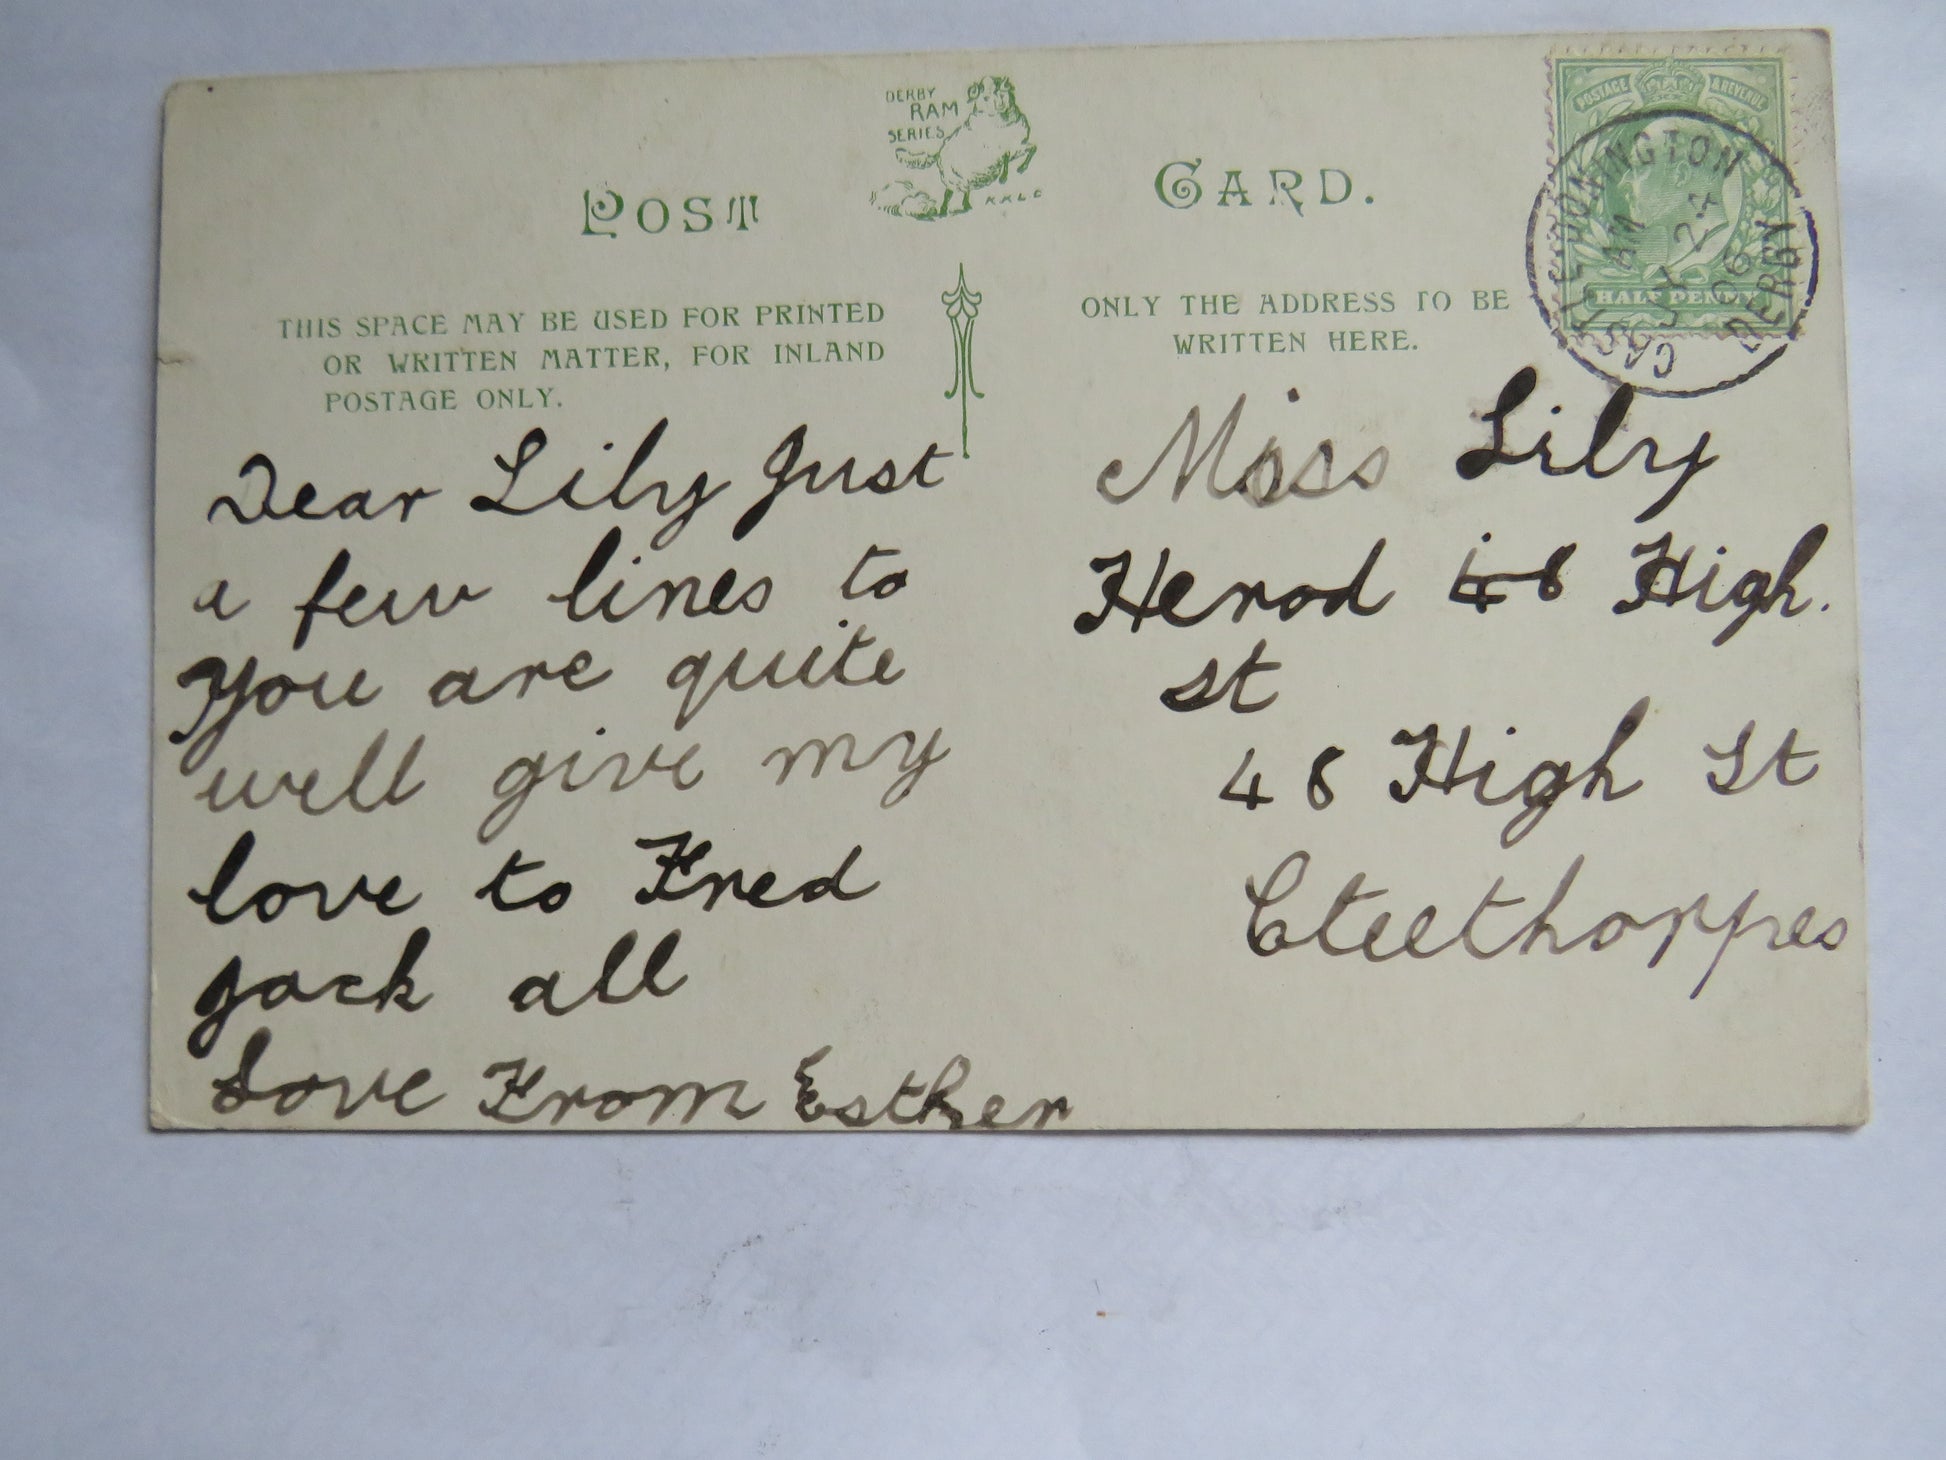 DERBY
RAM
SERIES
POST CARD.
THIS SPACE MAY BE USED FOR PRINTED
OR WRITTEN MATTER, FOR INLAND
POSTAGE ONLY.
ONLY THE ADDRESS TO BE
WRITTEN HERE.
POSTAGE & REVENUE
HALF PENNY
CASTLE DONINGTON
AM
24
06
DERBY
Dear Lily Just
a few lines to
You are quite
well give my
love to Fred
Jack all
Love From Esther
Miss Lily
Herod 48 High.
St
48 High St
Cleethorpes